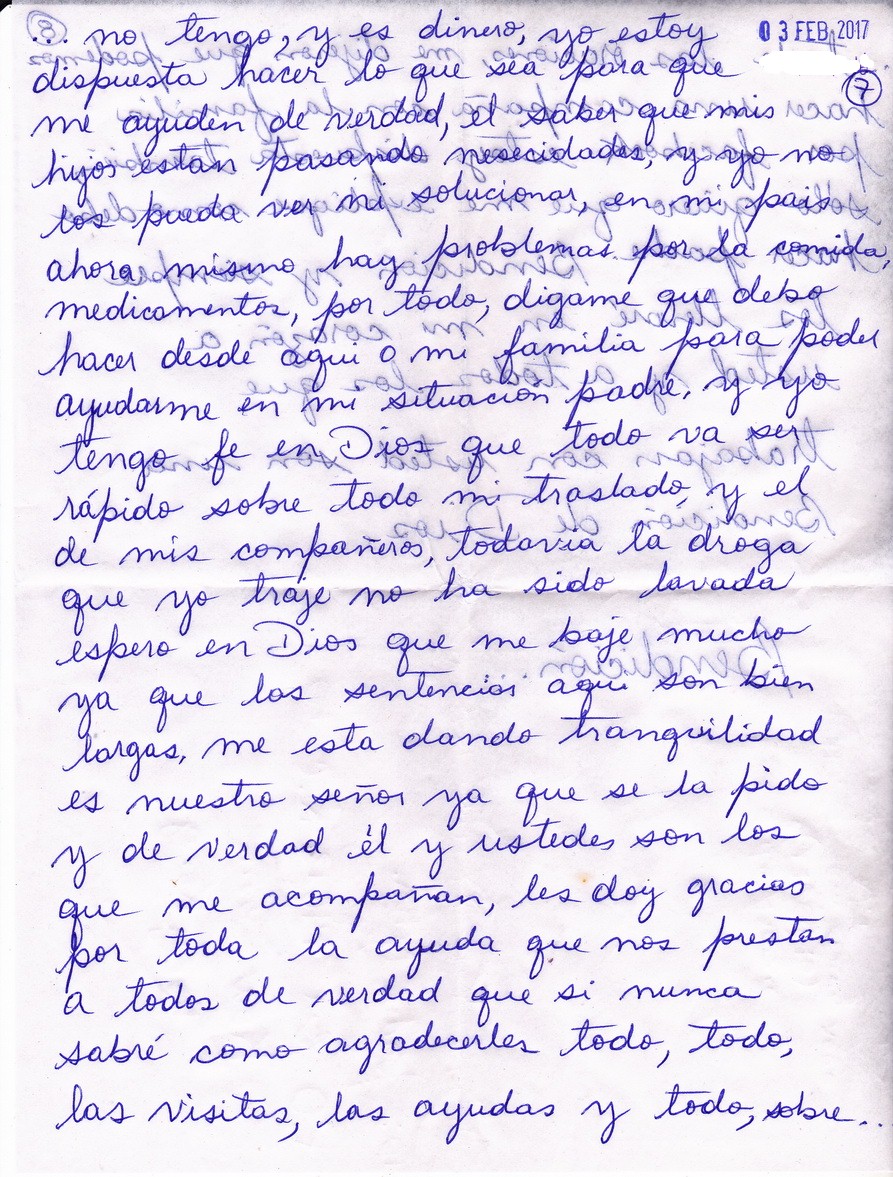 ... no tengo, y es dinero, yo estoy
03 FEB 2017
dispuesta hacer lo que sea para que
7
me ayuden de verdad, el saber que mis
hijos estan pasando nesecidades, y yo no
los pueda ver ni solucionar, en mi pais
ahora mismo hay problemas por la comida,
medicamentos, por todo, digame que debo
hacer desde aqui o mi familia para poder
ayudarme en mi situación padre, y yo
tengo fe en Dios que todo va ser
rápido sobre todo mi traslado, y el
de mis compañeros, todavia la droga
que yo traje no ha sido lavada
espero en Dios que me baje mucho
ya que las sentencias aqui son bien
largas, me esta dando tranquilidad
es nuestro señor ya que se la pido
y de verdad él y ustedes son los
que me acompañan, les doy gracias
por toda la ayuda que nos prestan
a todos de verdad que si nunca
sabré como agradecerles todo, todo,
las visitas, las ayudas y todo, sobre...